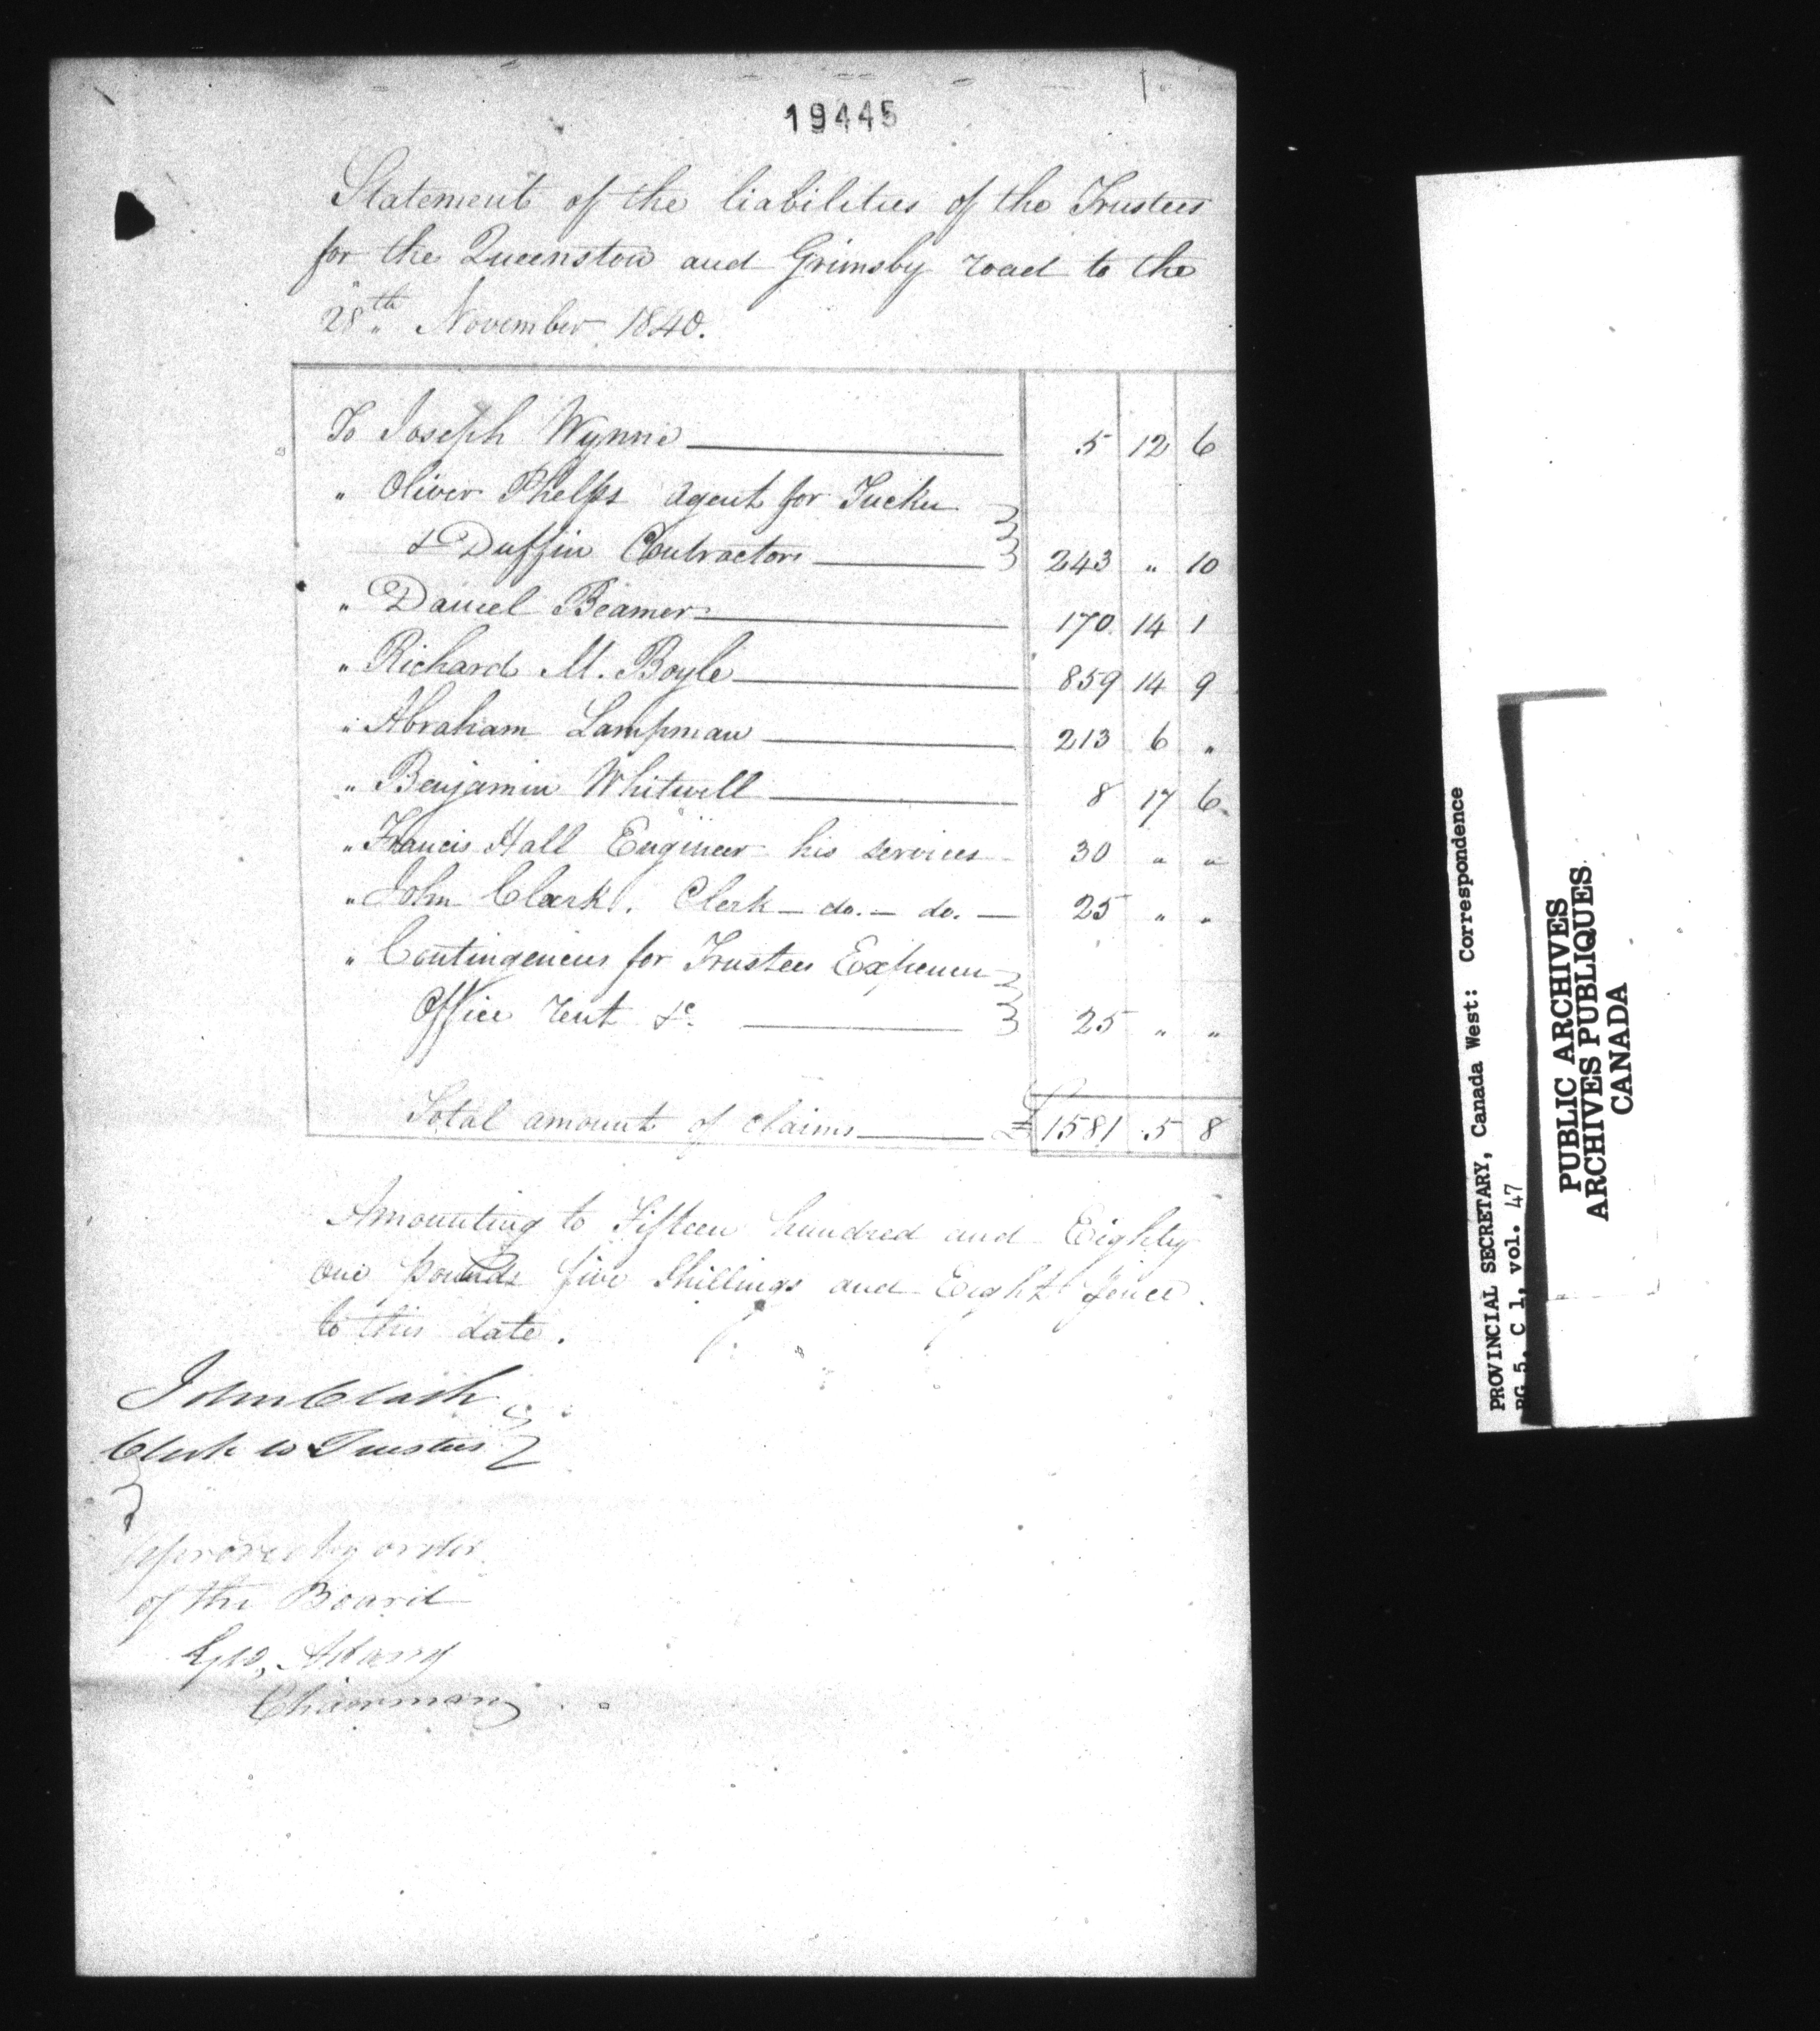 19445
Statement of the liabilities of the Trustees
for the Queenston and Grimsby road to the
28th November 1840.
To Joseph Wynne 5 12 6
" Oliver Phelps agent for Tucker
& Duffin Contractors 243 " 10
" Daniel Beamer 170 14 1
" Richard M. Boyle 859 14 9
" Abraham Lampman 213 6 "
" Benjamin Whitwell 8 17 6
" Francis Hall Engineer his services 30 " "
" John Clark. Clerk - do. - do. - 25 " "
" Contingencies for Trustees Expences
Office rent &c. 25 " "
Total amount of claims £ 1581 5 8
Amounting to Fifteen hundred and Eighty
one pounds five Shillings and Eight pence
to this date.
John Clark
Clerk to Trustees
Approved by order
of the Board
Geo, Adams
Chairman
PROVINCIAL SECRETARY, Canada West: Correspondence
RG 5, C 1, vol. 47
PUBLIC ARCHIVES
ARCHIVES PUBLIQUES
CANADA